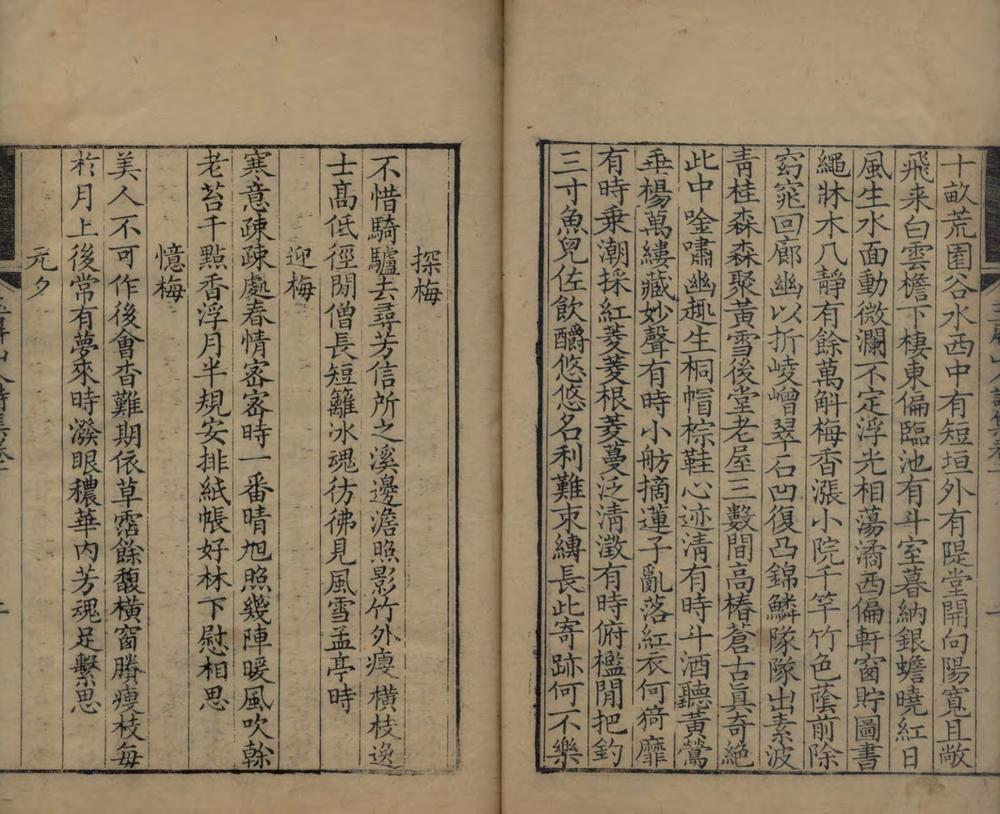 十畝荒園谷水西中有短垣外有隄堂開向陽寬且敞
飛来白雲檐下棲東偏臨池有斗室暮納銀蟾曉紅日
風生水面動微瀾不定浮光相蕩潏西偏軒窗貯圖書
繩牀木几靜有餘萬斛梅香漲小院千竿竹色蔭前除
窈窕回廊幽以折崚嶒翠石凹復凸錦鱗隊隊出素波
青桂森森聚黃雪後堂老屋三數間高椿蒼古真奇絶
此中唫嘯幽趣生桐帽棕鞋心迹清有時斗酒聽黃鶯
垂楊萬縷藏妙聲有時小舫摘蓮子亂落紅衣何猗靡
有時乗潮採紅菱菱根菱蔓泛清澂有時俯檻閒把釣
三寸魚兒佐飲釂悠悠名利難束縛長此寄跡何不樂
探梅
不惜騎驢去尋芳信所之溪邊澹照影竹外瘦橫枝逸
士高低徑閒僧長短籬冰魂彷彿見風雪孟亭時
迎梅
寒意疎疎處春情宻宻時一番晴旭照幾陣暖風吹榦
老苔千點香浮月半規安排紙帳好林下慰相思
憶梅
美人不可作後會杳難期依草霑餘馥橫窗賸瘦枝每
於月上後常有夢來時潑眼穠華内芳魂足繫思
元夕